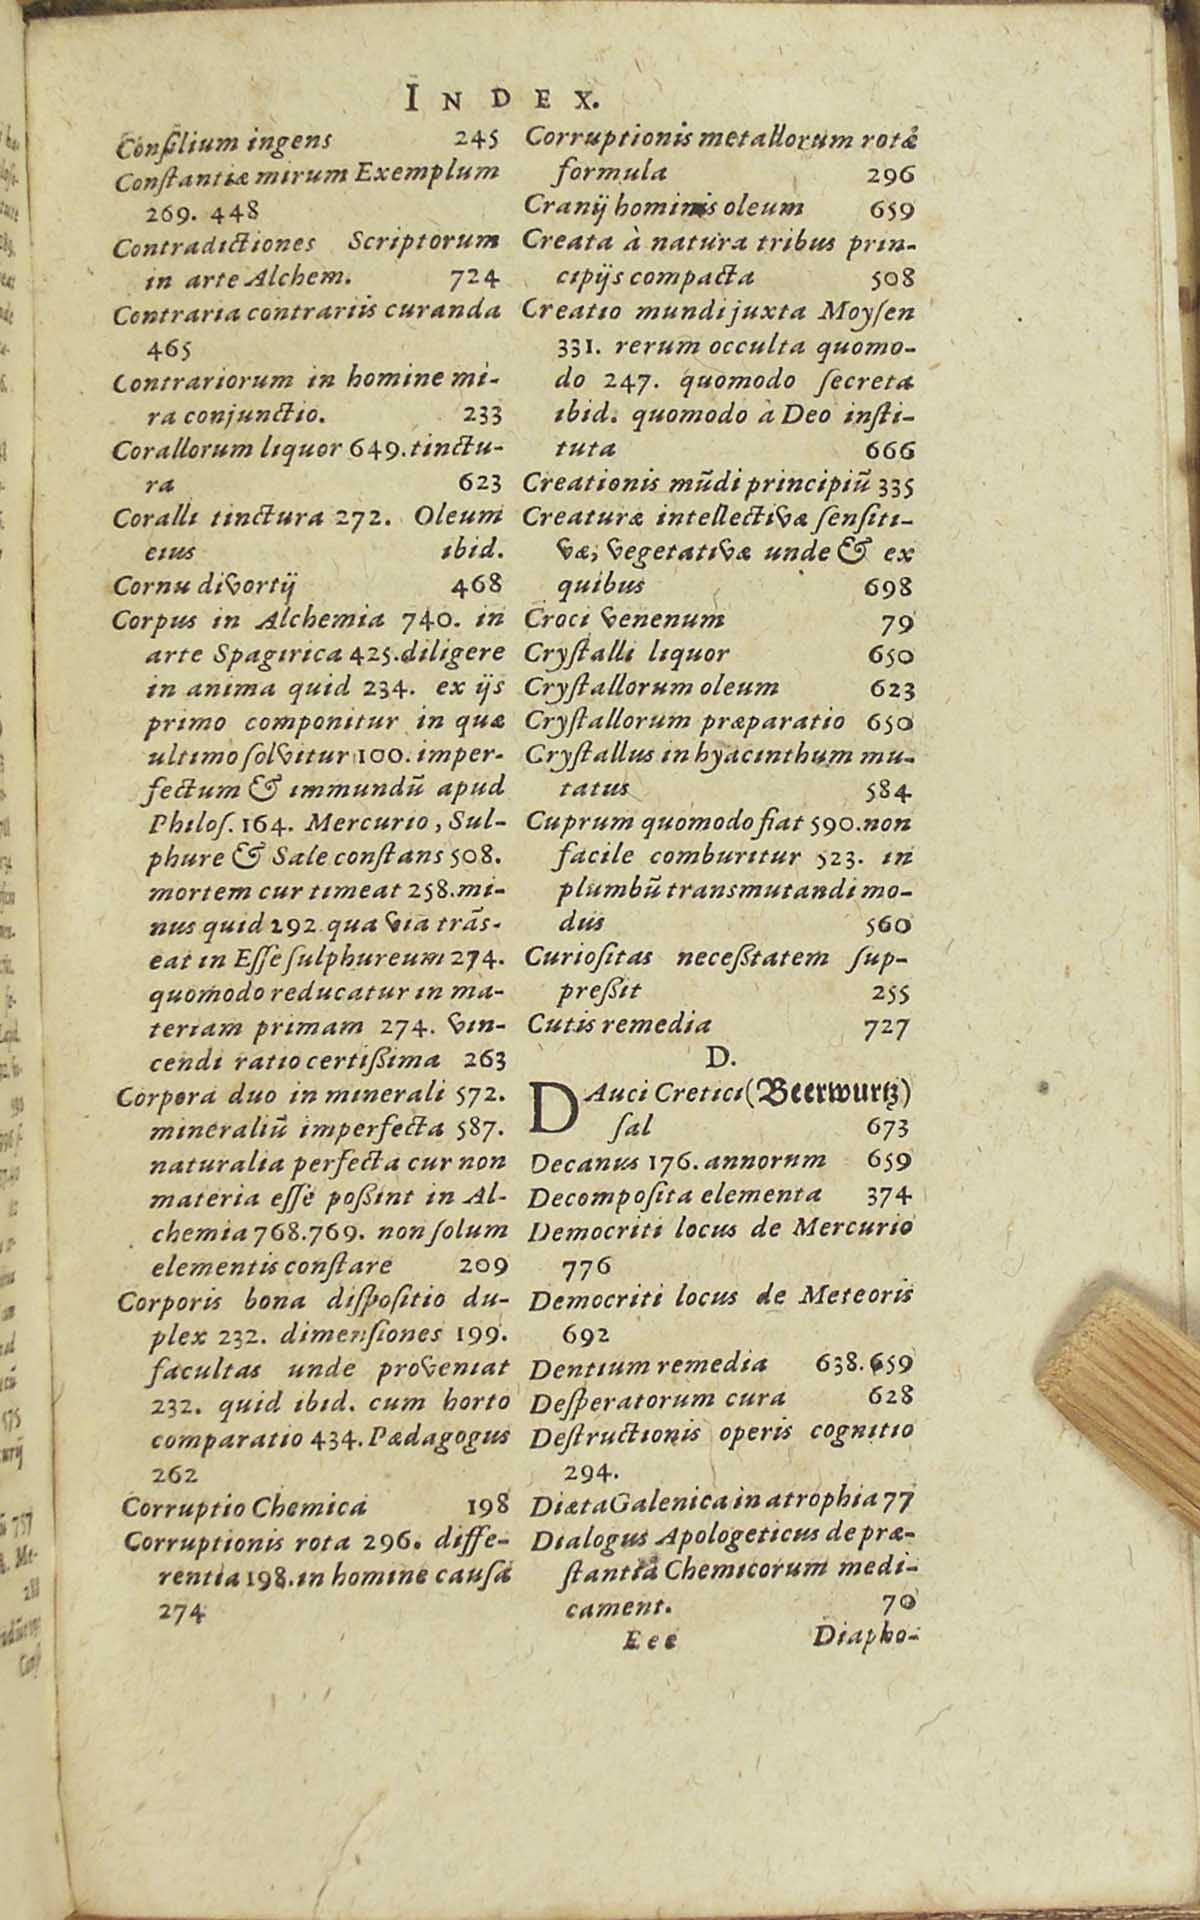 INDEX.
Conſilium ingens 245
Conſtantiæ mirum Exemplum
269. 448
Contradictiones Scriptorum
in arte Alchem. 724
Contraria contrariis curanda
465
Contrariorum in homine mi-
ra conjunctio. 233
Corallorum liquor 649. tinctu-
ra 623
Coralli tinctura 272. Oleum
eius ibid.
Cornu divortij 468
Corpus in Alchemia 740. in
arte Spagirica 425. diligere
in anima quid 234. ex ijs
primo componitur in quæ
ultimo ſolvitur 100. imper-
fectum & immundū apud
Philoſ. 164. Mercurio, Sul-
phure & Sale conſtans 508.
mortem cur timeat 258. mi-
nus quid 292 qua via trāſ-
eat in Eſſe ſulphureum 274.
quomodo reducatur in ma-
teriam primam 274. vin-
cendi ratio certißima 263
Corpora duo in minerali 572.
mineraliū imperfecta 587.
naturalia perfecta cur non
materia eſſe poßint in Al-
chemia 768. 769. non ſolum
elementis conſtare 209
Corporis bona diſpoſitio du-
plex 232. dimenſiones 199.
facultas unde proveniat
232. quid ibid. cum horto
comparatio 434. Pædagogus
262
Corruptio Chemica 198
Corruptionis rota 296. diffe-
rentia 198. in homine cauſa
274
Corruptionis metallorum rotæ
formula 296
Cranij hominis oleum 659
Creata à natura tribus prin-
cipijs compacta 508
Creatio mundi juxta Moyſen
331. rerum occulta quomo-
do 247. quomodo ſecreta
ibid. quomodo à Deo inſti-
tuta 666
Creationis mūdi principiū 335
Creaturæ intellectivæ ſenſiti-
væ, vegetativæ unde & ex
quibus 698
Croci venenum 79
Cryſtalli liquor 650
Cryſtallorum oleum 623
Cryſtallorum præparatio 650
Cryſtallus in hyacinthum mu-
tatus 584
Cuprum quomodo fiat 590. non
facile comburitur 523. in
plumbū transmutandi mo-
dus 560
Curioſitas neceßtatem ſup-
preßit 255
Cutis remedia 727
D.
DAuci Cretici (Beerwurtz)
ſal 673
Decanus 176. annorum 659
Decompoſita elementa 374
Democriti locus de Mercurio
776
Democriti locus de Meteoris
692
Dentium remedia 638. 659
Deſperatorum cura 628
Deſtructionis operis cognitio
294.
Diæta Galenica in atrophia 77
Dialogus Apologeticus de præ-
ſtantia Chemicorum medi-
cament. 70
Eee Diapho-